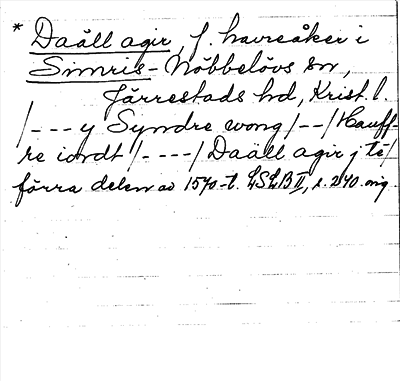 * Daäll agir, f. havreåker i
Simris-Nöbbelövs sn,
Järrestads hd, Krist. l.
/---y Syndre wong/--/Hauff-
re iordt/----/Daäll agir j té/
förra delen av 1570-t. LSLB II, s. 240. orig.